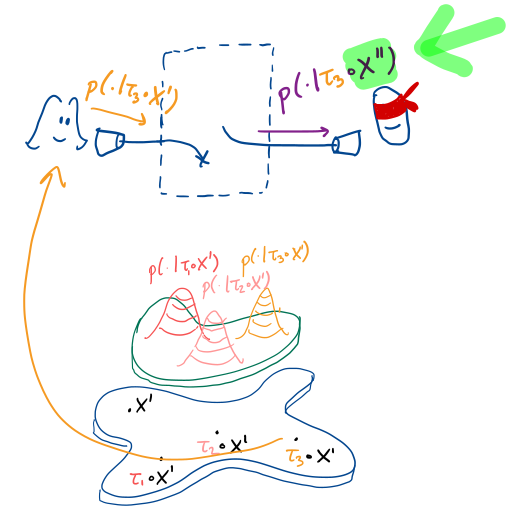 p(·|τ₃∘X')
p(·|τ₃∘X'')
p(·|τ₁∘X')
p(·|τ₃∘X')
p(·|τ₂∘X')
.X'
τ₂∘X'
τ₃∘X'
τ₁∘X'